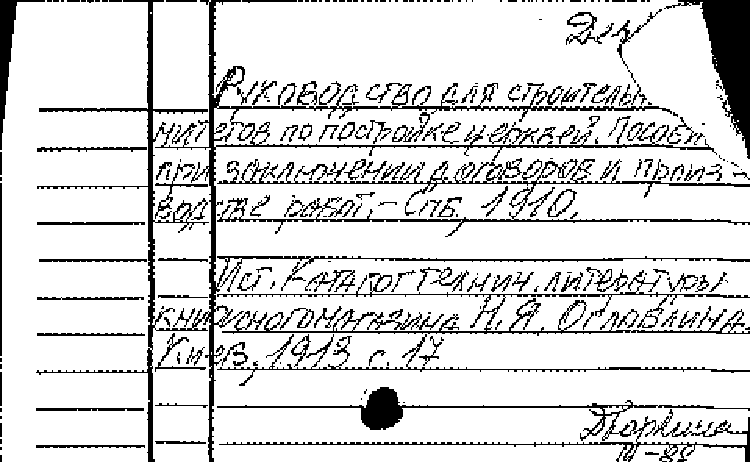 Руководство для строительн
митетов по постройке церквей. Пособи
при заключении договоров и произ-
водстве работ. - Спб, 1910.
Ист. Каталог технич. литературы
книжного магазина Н. Я. Оглоблина.
Киев, 1913 с. 17
IV-88